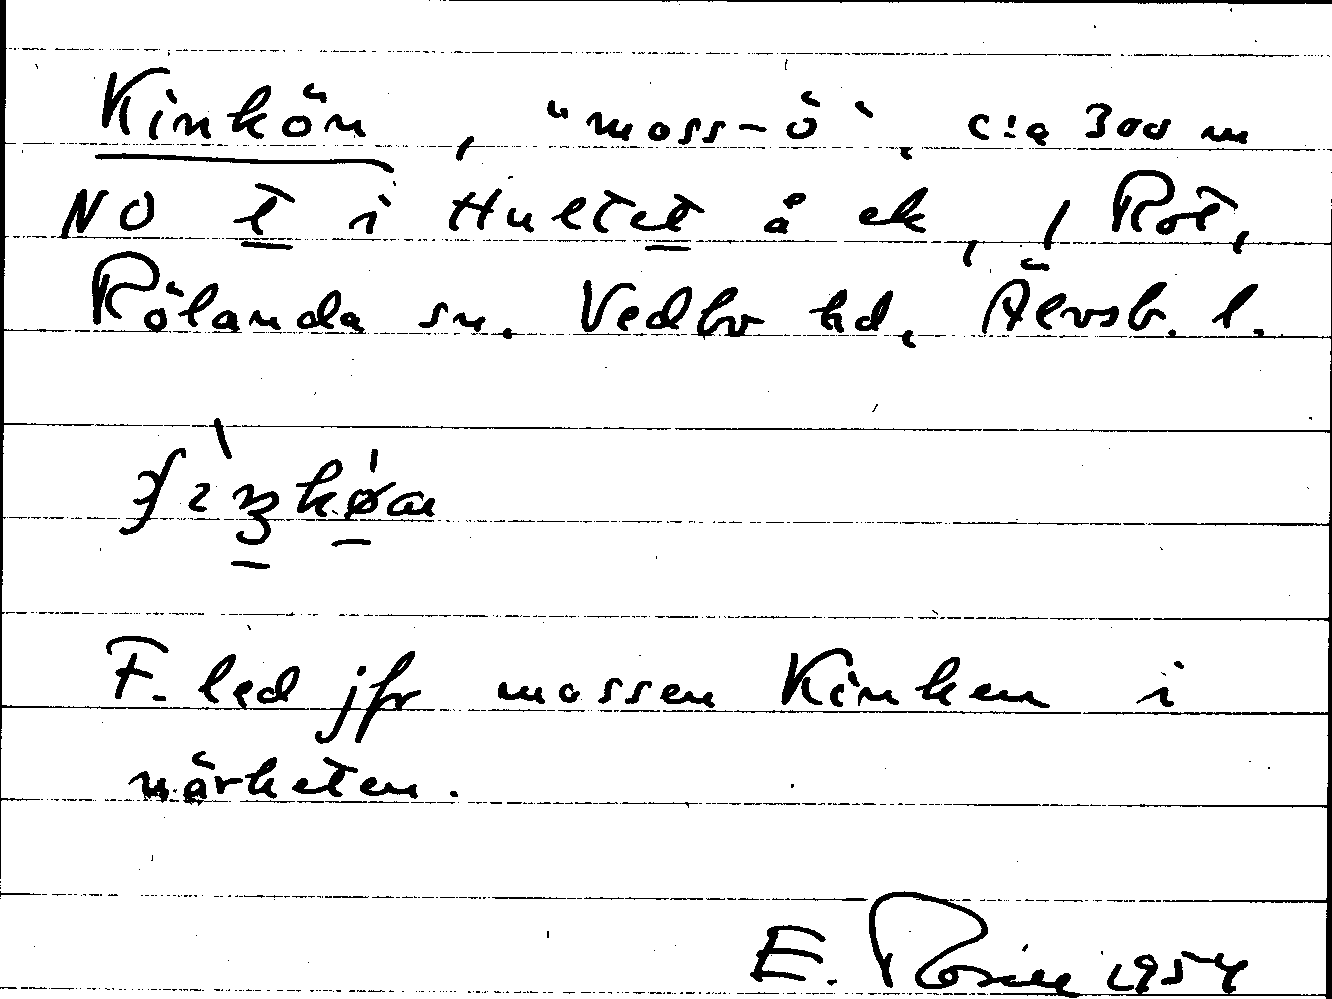 Kinkön, "moss-ö", c:a 300 m
NO t i Hultet å ek, 1 Röt,
Rölanda sn. Vedbo hd, Älvsb. l.
F. led jfr mossen Kinken i
närheten.
E. 1954